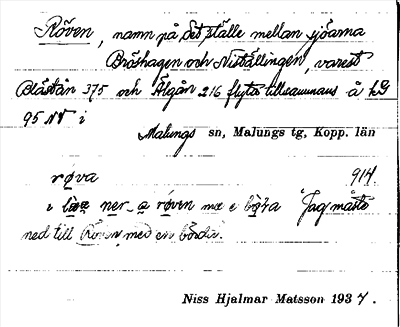 Röven, namn på det ställe mellan sjöarna
Bråthagen och Niställingen, varest
Blästån 375 och Älgån 216 flyta tillsammans å hG
95 NV i
Malungs sn, Malungs tg, Kopp. län
røva 914
ner røven mæ e
"Jag måste
ned till Röven med en börda".
Niss Hjalmar Matsson 1937.